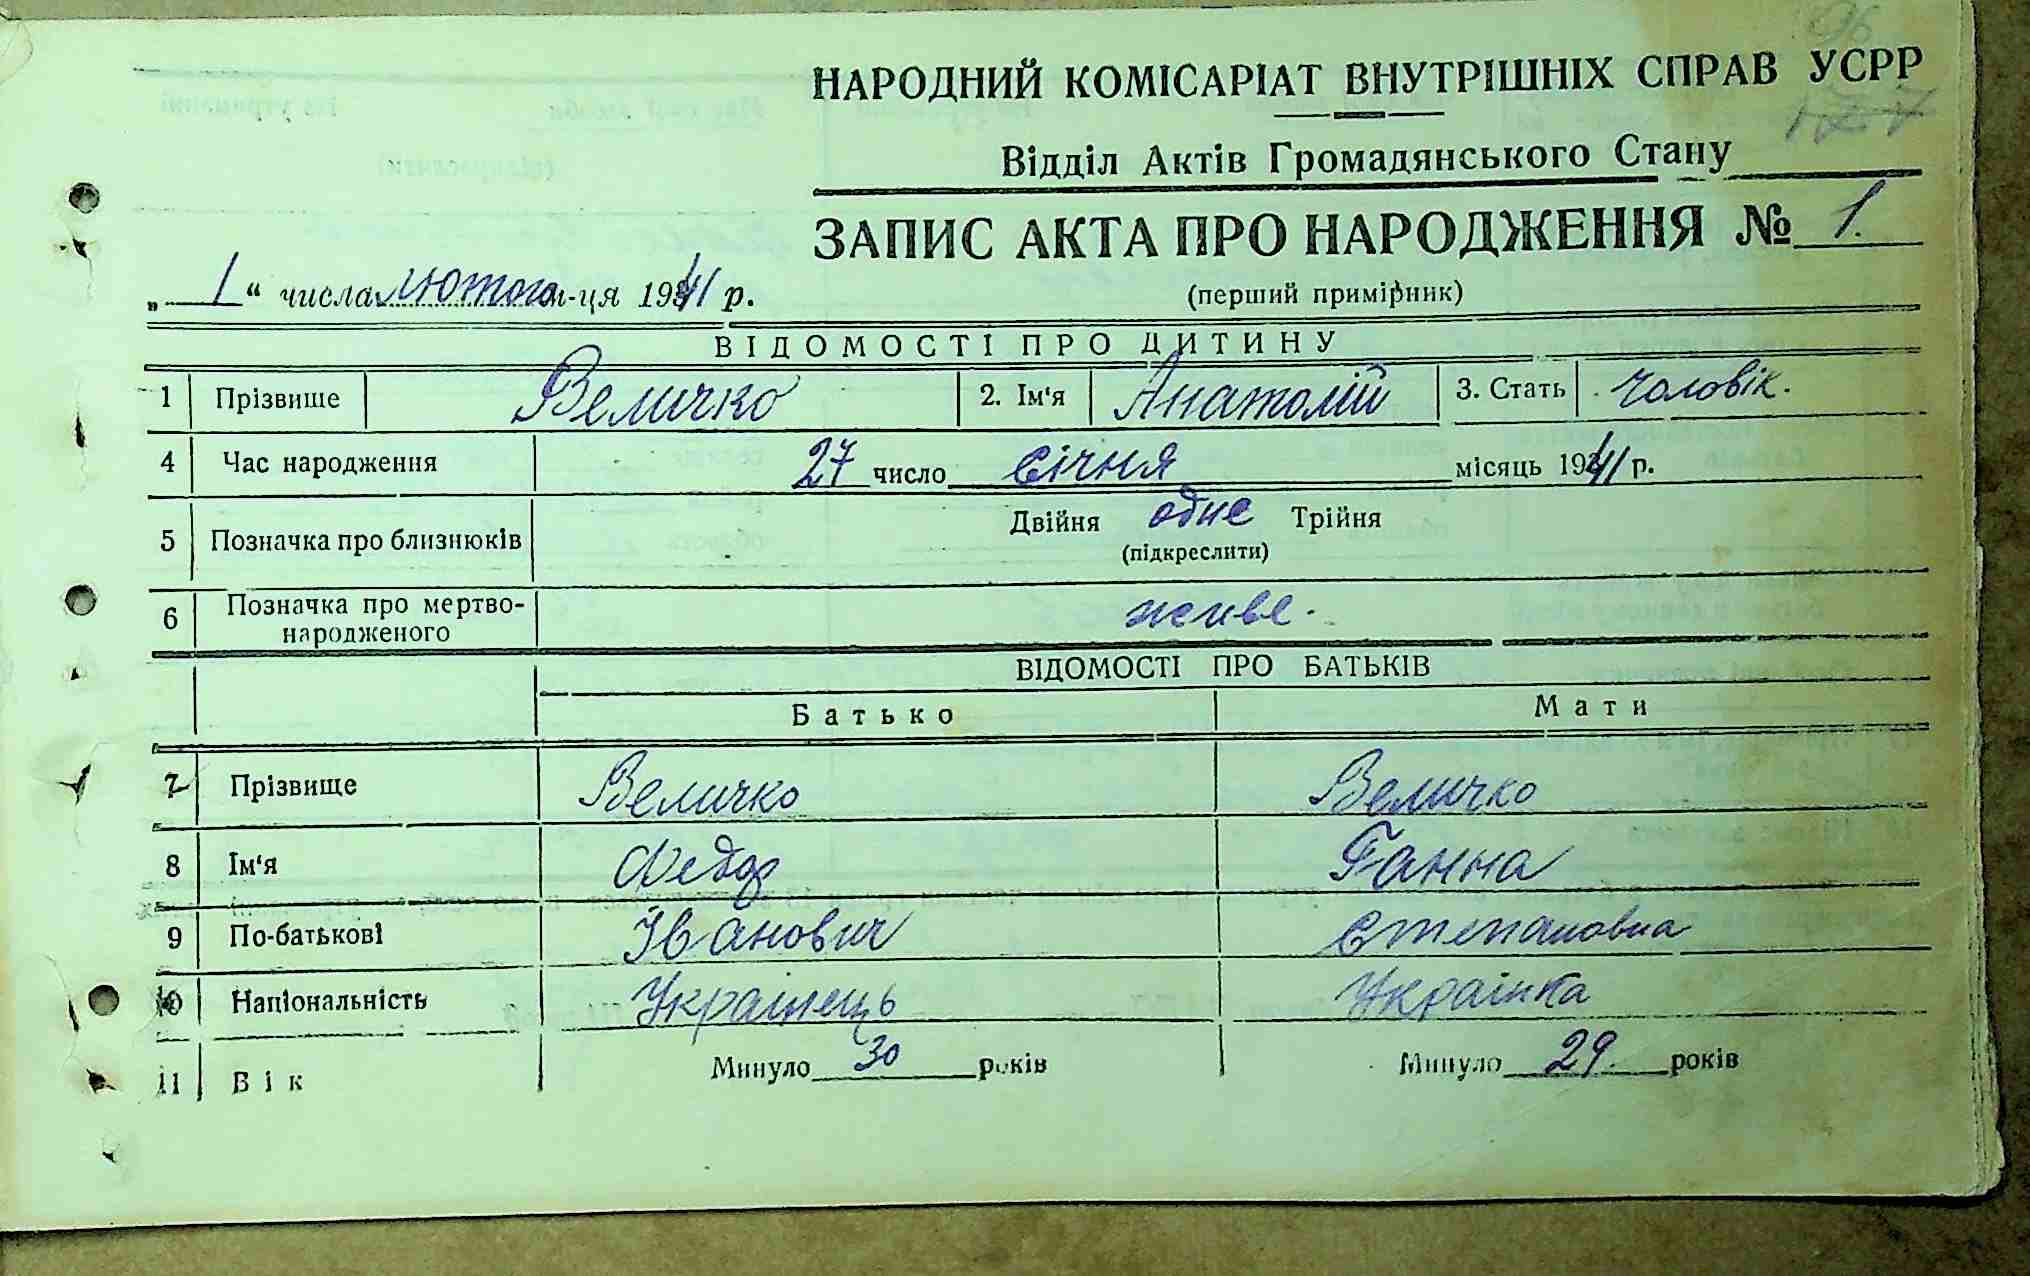 96
НАРОДНИЙ КОМІСАРІАТ ВНУТРІШНІХ СПРАВ УСРР
177
Відділ Актів Громадянського Стану
ЗАПИС АКТА ПРО НАРОДЖЕННЯ № 1.
„ 1 “ числа лютого м-ця 1941 р.
(перший примірник)
ВІДОМОСТІ ПРО ДИТИНУ
1 Прізвище Величко 2. Ім'я Анатолій 3. Стать чоловік.
4 Час народження 27 число січня місяць 1941 р.
5 Позначка про близнюків Двійня одне Трійня
(підкреслити)
6 Позначка про мертво-
народженого живе.
ВІДОМОСТІ ПРО БАТЬКІВ
Батько Мати
7 Прізвище Величко Величко
8 Ім'я Федор Ганна
9 По-батькові Іванович Степановна
10 Національність Українець Українка
11 Вік Минуло 30 років Минуло 29. років